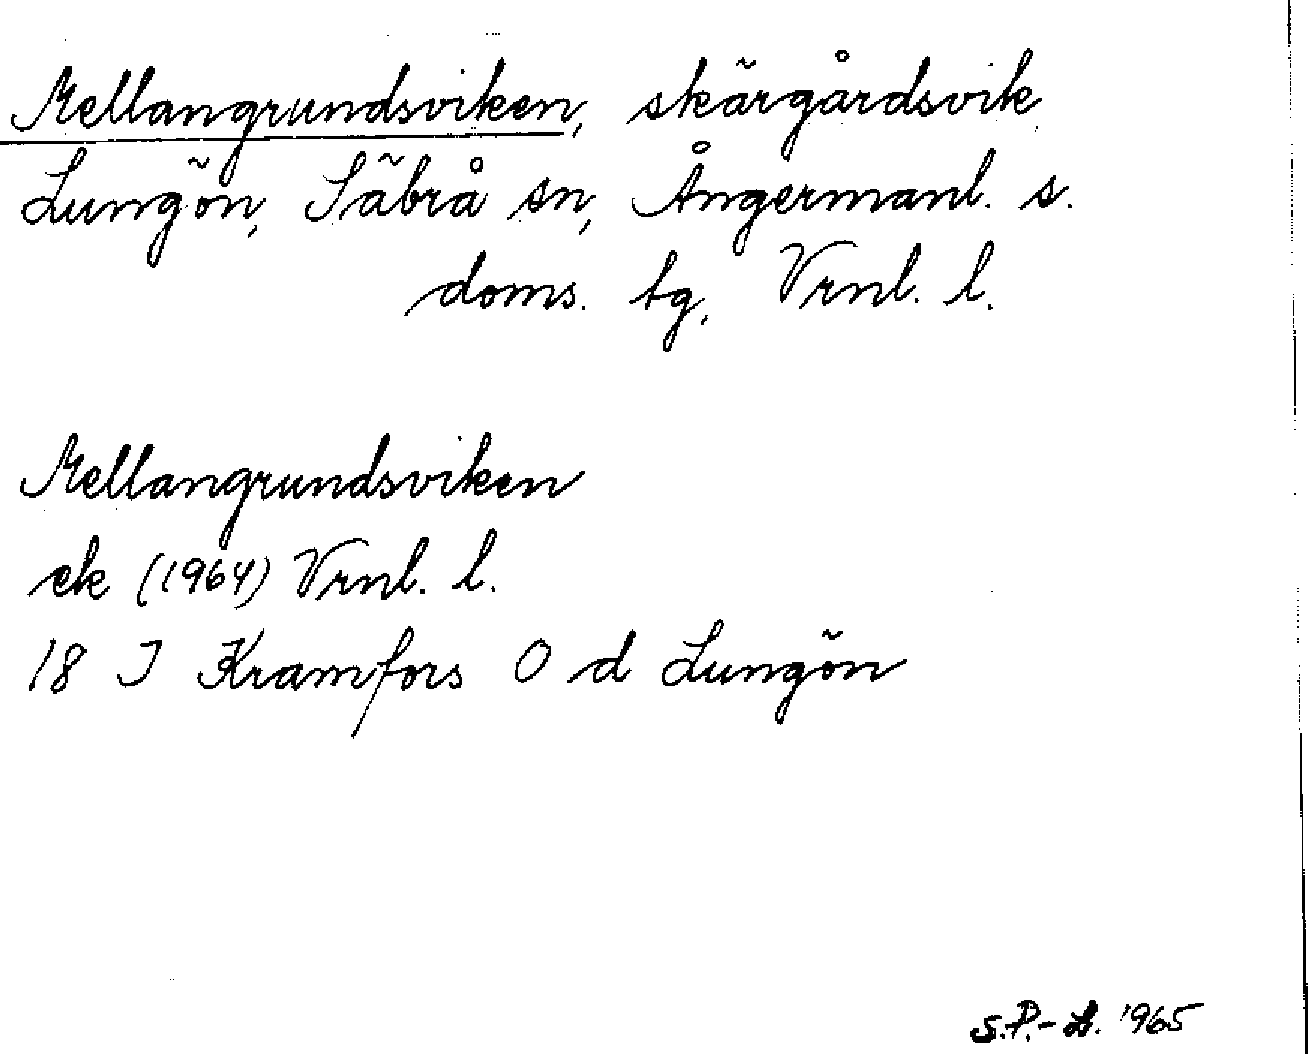 Mellangrundsviken, skärgårdsvik
Lungön, Säbrå sn, Ångermanl. s.
doms. tg, Vrnl. l.
Mellangrundsviken
ek (1964) Vrnl. l.
18 I Kramfors O d Lungön
S.P.-L. 1965